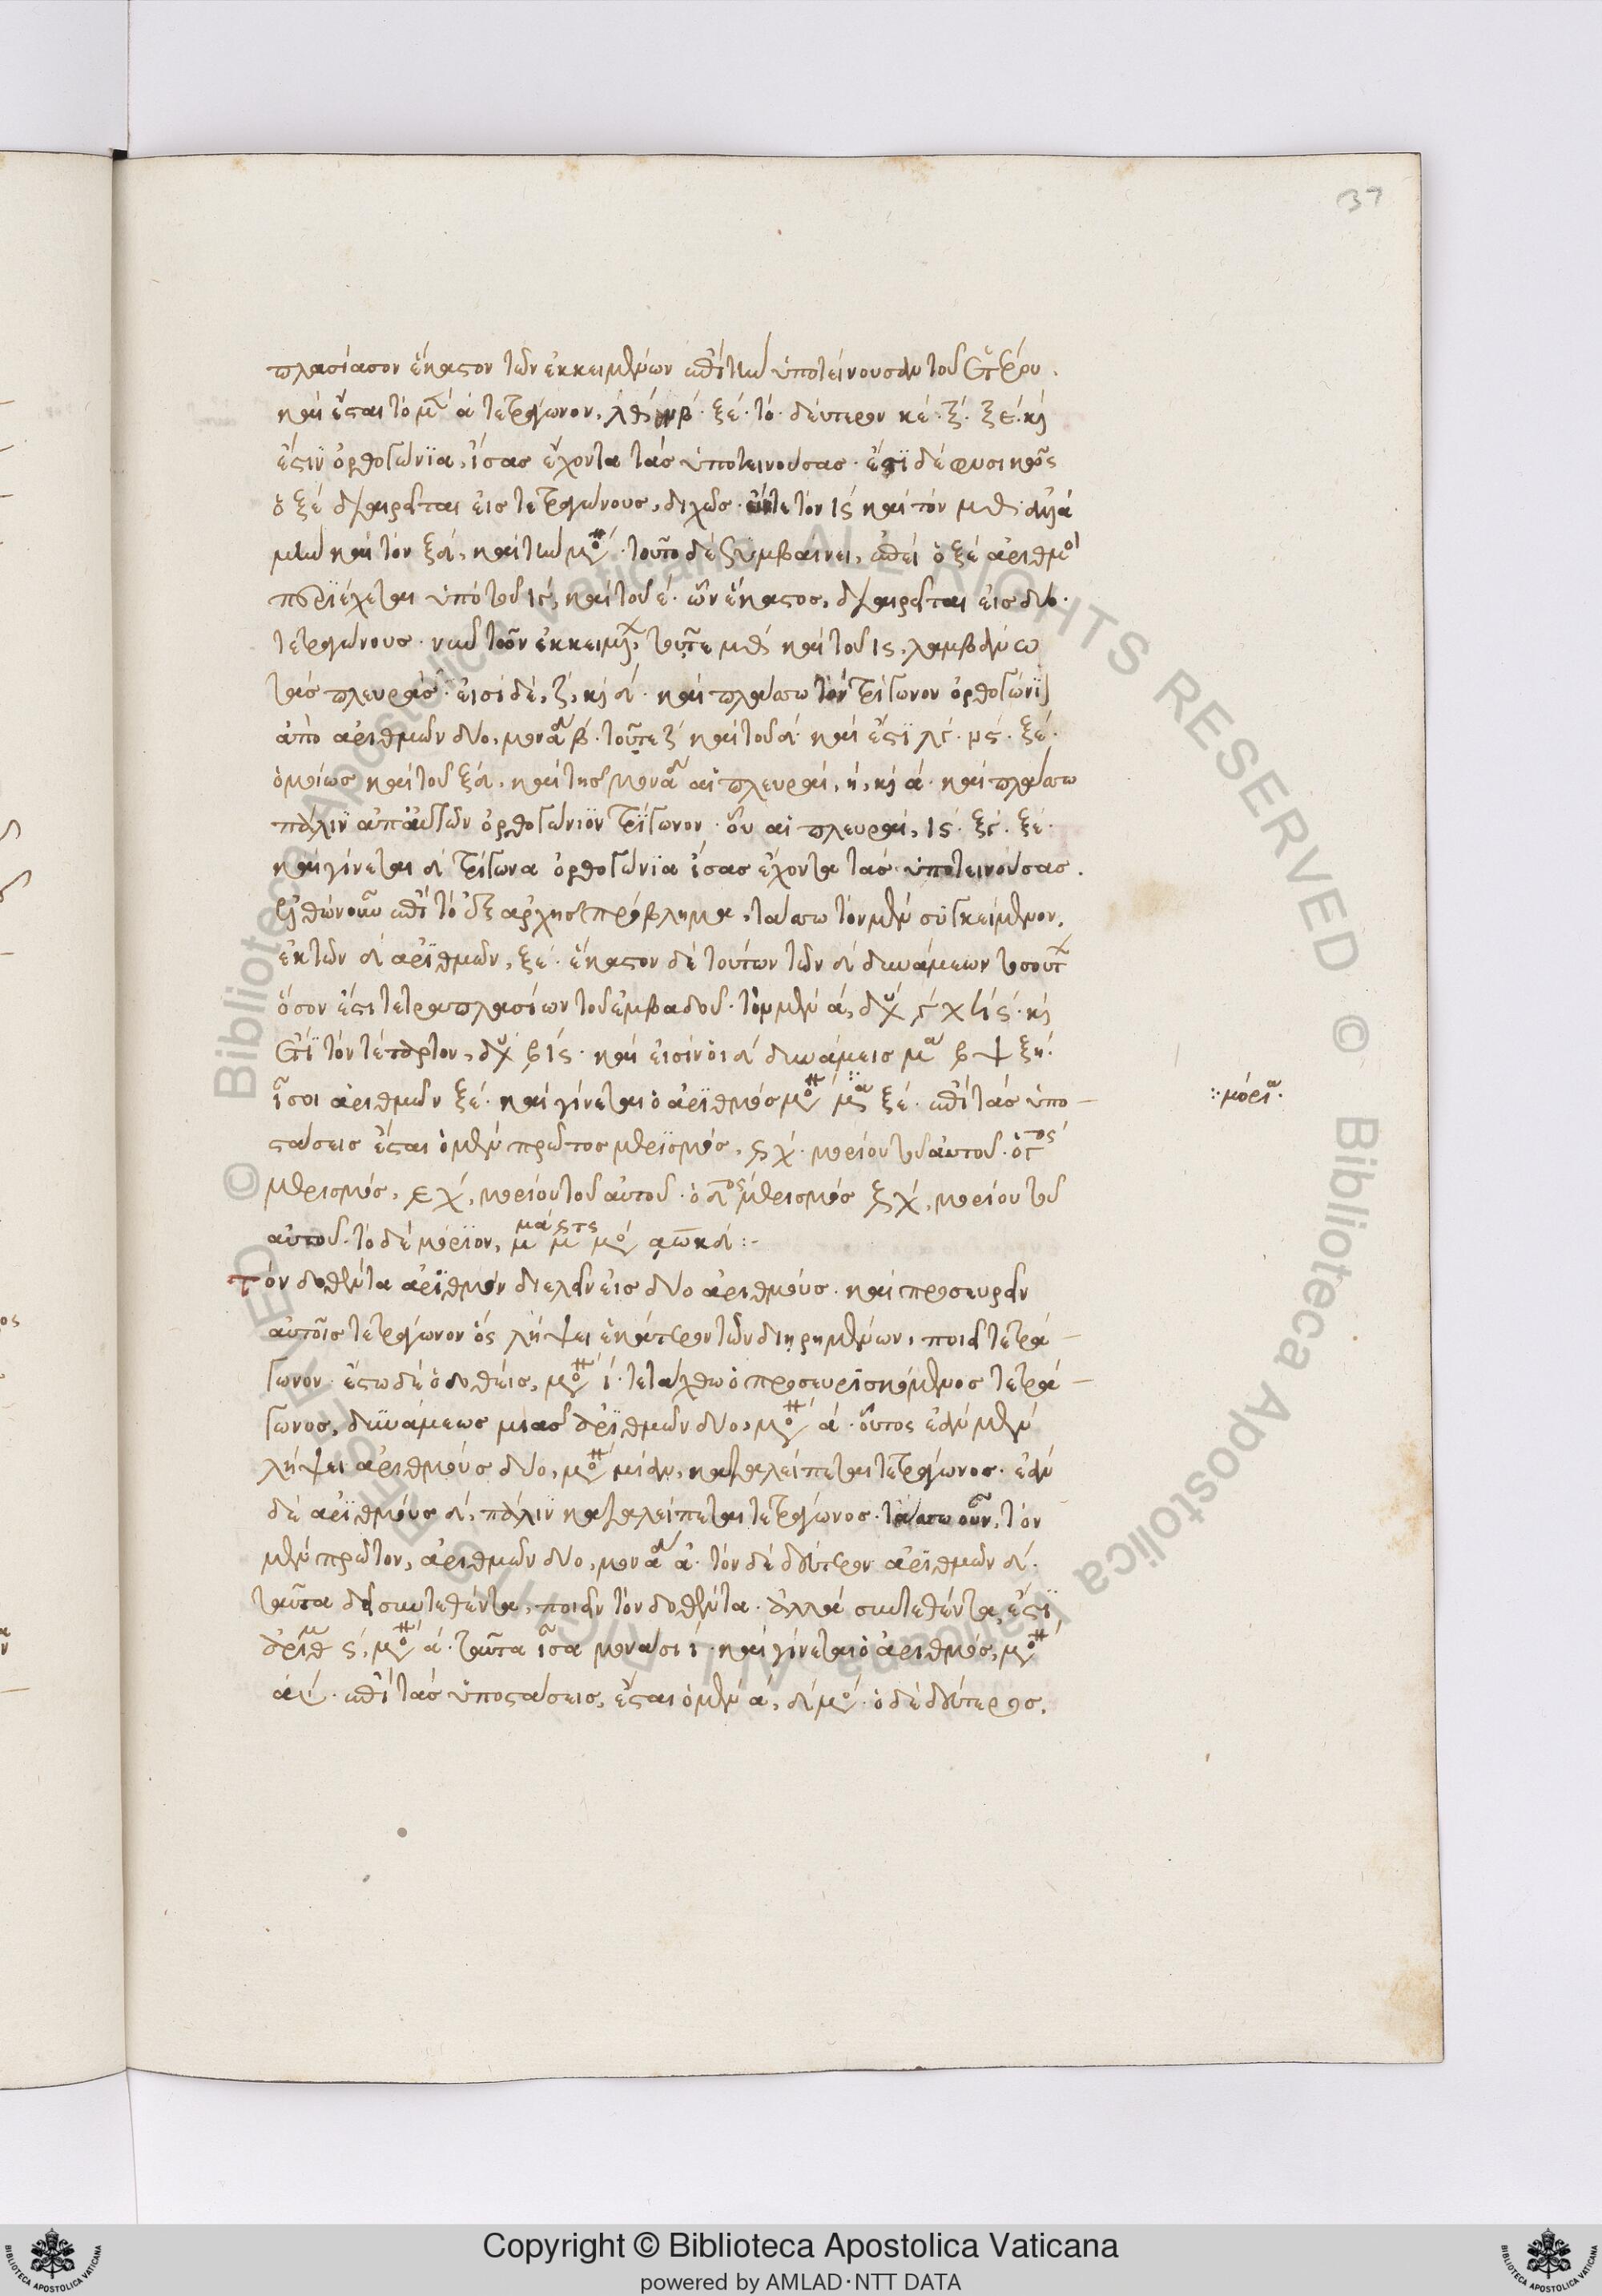 37
πλασίασον ἕκαστον τῶν ἐκκειμένων ἐπὶ τὴν ὑποτείνουσαν τοῦ ἑτέρου.
καὶ ἔσται τὸ μὲν ά τετράγωνον, λθ, νβ. ξέ. τὸ δεύτερον κέ. ξ. ξε. καὶ
ἐστιν ὀρθογώνια, ἴσας ἔχοντα τὰς ὑποτεινούσας. ἔτι δὲ φυσικῶς
ὁ ξέ διαιρεῖται εἰς τετραγώνους, διχῶς. εἴς τε τὸν ις καὶ τὸν μθ. ἀλλὰ
μὴν καὶ τὸν ξδ, καὶ τὴν μο. τοῦτο δὲ συμβαίνει, ἐπεὶ ὁ ξέ ἀριθμο
περιέχεται ὑπὸ τοῦ ιγ, καὶ τοῦ ε. ὧν ἕκαστος, διαιρεῖται εἰς δύο
τετραγώνους. νῦν τῶν ἐκκειμ, τοῦ τε μθ καὶ τοῦ ις, λαμβάνω
τὰς πλευράς. εἰσὶ δέ, ζ, καὶ δ. καὶ πλάσσω τὸν τρίγωνον ὀρθογώνι
ἀπὸ ἀριθμῶν δύο, τοῦ τε ζ καὶ τοῦ δ. καὶ ἔστι λγ. νς. ξέ.
ὁμοίως καὶ τοῦ ξδ, καὶ τῆς μονα αἱ πλευραί, η, καὶ ά. καὶ πλάσσω
πάλιν ἀπ' αὐτῶν ὀρθογώνιον τρίγωνον. οὗ αἱ πλευραί, ις. ξγ. ξέ.
καὶ γίνεται δ τρίγωνα ὀρθογώνια ἴσας ἔχοντα τὰς ὑποτεινούσας.
ἐλθὼν οὖν ἐπὶ τὸ ἐξ ἀρχῆς πρόβλημα, τάσσω τὸν μὲν συγκείμενον,
ἐκ τῶν δ ἀριθμῶν, ξέ. ἕκαστον δὲ τούτων τῶν δ δυνάμεων τοσούτ
ὅσον ἐστὶ τετραπλασίων τοῦ ἐμβαδοῦ. τὸν μὲν ά,
ἔτι τὸν τέταρτον, βις. καὶ εἰσὶν οἱ δ δυνάμεις μα βψξη.
ἴσοι ἀριθμῶν ξέ. καὶ γίνεται ὁ ἀριθμὸς μο μα ξέ. ἐπὶ τὰς ὑπο-
∴ μόρια.
στάσεις ἔσται ὁ μὲν πρῶτος μερισμός, μορίου τοῦ αὐτοῦ. ὁ γος
μερισμός, μορίου τοῦ αὐτοῦ. ὁ δος μερισμός μορίου τοῦ
αὐτοῦ. τὸ δὲ μόριον,
τὸν δοθέντα ἀριθμὸν διελεῖν εἰς δύο ἀριθμούς. καὶ προσευρεῖν
αὐτοῖς τετράγωνον ὃς λήψει ἑκάτερον τῶν διῃρημένων, ποιεῖ τετρά-
γωνον. ἔστω δὲ ὁ δοθείς, μο ί. τετάχθω ὁ προσευρισκόμενος τετρά-
γωνος, δυνάμεως μιᾶς ἀριθμῶν δύο, μο ά. οὗτος ἐὰν μὲν
λήψει ἀριθμοὺς δύο, μο μίαν, καταλείπεται τετράγωνος. ἐὰν
δὲ ἀριθμοὺς δ, πάλιν καταλείπεται τετράγωνος. τάσσω οὖν, τὸν
μὲν πρῶτον, ἀριθμῶν δύο, μονα ά. τὸν δὲ δεύτερον ἀριθμῶν δ.
ταῦτα δεῖ συντεθέντα, ποιεῖν τὸν δοθέντα. ἀλλὰ συντεθέντα, ἐστὶ
ἀριθ ς, μο ά. ταῦτα ἴσα μονάσι ί. καὶ γίνεται ὁ ἀριθμός, μο
ἐπὶ τὰς ὑποστάσεις, ἔσται ὁ μὲν ά, δ μο. ὁ δὲ δεύτερος,
© Biblioteca Apostolica Vaticana ALL RIGHTS RESERVED
Copyright © Biblioteca Apostolica Vaticana
powered by AMLAD·NTT DATA
BIBLIOTECA APOSTOLICA VATICANA
BIBLIOTECA APOSTOLICA VATICANA